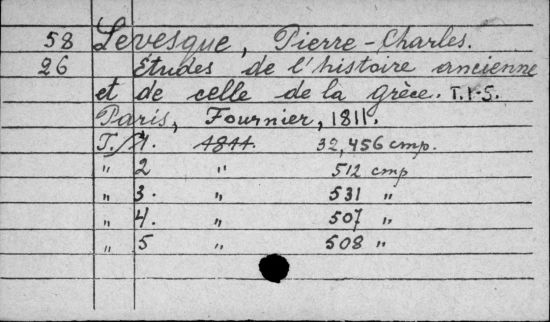 58 Levesque, Pierre-Charles.
26 Études de l'histoire ancienne
et de celle de la grèce. T.1-5.
Paris, Fournier, 1811.
T./1. 1811. 32, 456 cmp.
" 2 " 512 cmp
" 3. " 531 "
" 4. " 507 "
" 5 " 508 "